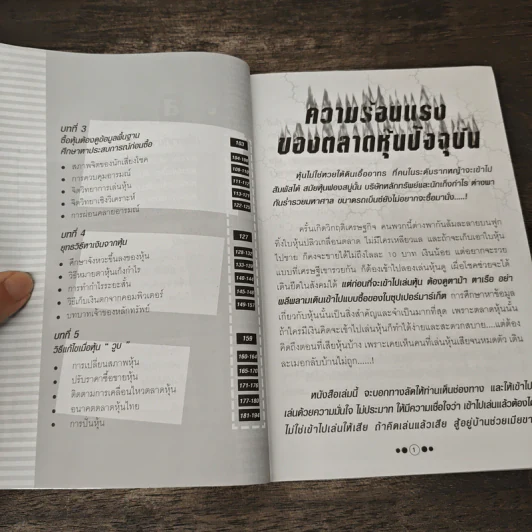 บทที่ 3
ซื้อหุ้นต้องดูข้อมูลพื้นฐาน
ศึกษาหาประสบการณ์ก่อนซื้อ 103
• สภาพจิตของนักเสี่ยงโชค 104-108
• การควบคุมอารมณ์ 109-110
• จิตวิทยาการเล่นหุ้น 111-112
• จิตวิทยาเชิงวิเคราะห์ 113-121
• การผ่อนคลายอารมณ์ 122-125
บทที่ 4
ยุทธวิธีหาเงินจากหุ้น 127
• ศึกษาจังหวะขึ้นลงของหุ้น
• วิธีหมายตาหุ้นเก็งกำไร
• การทำกำไรระยะสั้น
• วิธีเก็บเงินตกจากคอมพิวเตอร์
• บทบาทเจ้าของหลักทรัพย์ 149-157
บทที่ 5
วิธีแก้ไขเมื่อหุ้น " วูบ " 159
• การเปลี่ยนสภาพหุ้น 160-164
• ปรับราคาซื้อขายหุ้น 165-170
• ติดตามการเคลื่อนไหวตลาดหุ้น 171-176
• อนาคตตลาดหุ้นไทย 177-183
• การปั่นหุ้น 181-194
ความร้อนแรง
ของตลาดหุ้นปัจจุบัน
หุ้นไม่ใช่หวยใต้ดินเอื้ออาทร ที่คนในระดับรากหญ้าจะเข้าไป
สัมผัสได้ สมัยหุ้นฟองสบู่นั้น บริษัทหลักทรัพย์และนักเก็งกำไร ต่างพา
กันร่ำรวยมหาศาล ขนาดรถเบนซ์ยังไม่อยากจะซื้อมานั่ง.....!
ครั้นเกิดวิกฤติเศรษฐกิจ คนพวกนี้ต่างพากันล้มละลายบนฟูก
ที่ใบหุ้นปลิวเกลื่อนตลาด ไม่มีใครเหลียวแล และถ้าจะเก็บเอาใบหุ้น
ไปขาย ก็คงจะขายได้ไม่ถึงโลละ 10 บาท เงินน้อย แต่อยากจะรวย
แบบที่เศรษฐีเขารวยกัน ก็ต้องเข้าไปลองเล่นหุ้นดู เผื่อโชคช่วยจะได้
เดินยืดในสังคมได้ แต่ก่อนที่จะเข้าไปเล่นหุ้น ต้องดูตาม้า ตาเรือ อย่า
พลีพลามเดินเข้าไปแบบซื้อของในซุปเปอร์มาร์เก็ต การศึกษาหาข้อมูล
เกี่ยวกับหุ้นนั้นเป็นสิ่งสำคัญและจำเป็นมากที่สุด เพราะตลาดหุ้นนั้น
ถ้าใครมีเงินคิดจะเข้าไปเล่นหุ้นก็ทำได้ง่ายและสะดวกสบาย....แต่ต้อง
คิดถึงตอนที่เสียหุ้นบ้าง เพราะเคยเห็นคนที่เล่นหุ้นเสียจนหมดตัว เดิน
ละเมอกลับบ้านไม่ถูก.......!
หนังสือเล่มนี้ จะบอกทางลัดให้ท่านเห็นช่องทาง และให้เข้าไป
เล่นด้วยความมั่นใจ ไม่ประมาท ให้มีความเชื่อใจว่า เข้าไปเล่นแล้วต้องได้
ไม่ใช่เข้าไปเล่นให้เสีย ถ้าคิดเล่นแล้วเสีย สู้อยู่บ้านช่วยเมียขาย
1